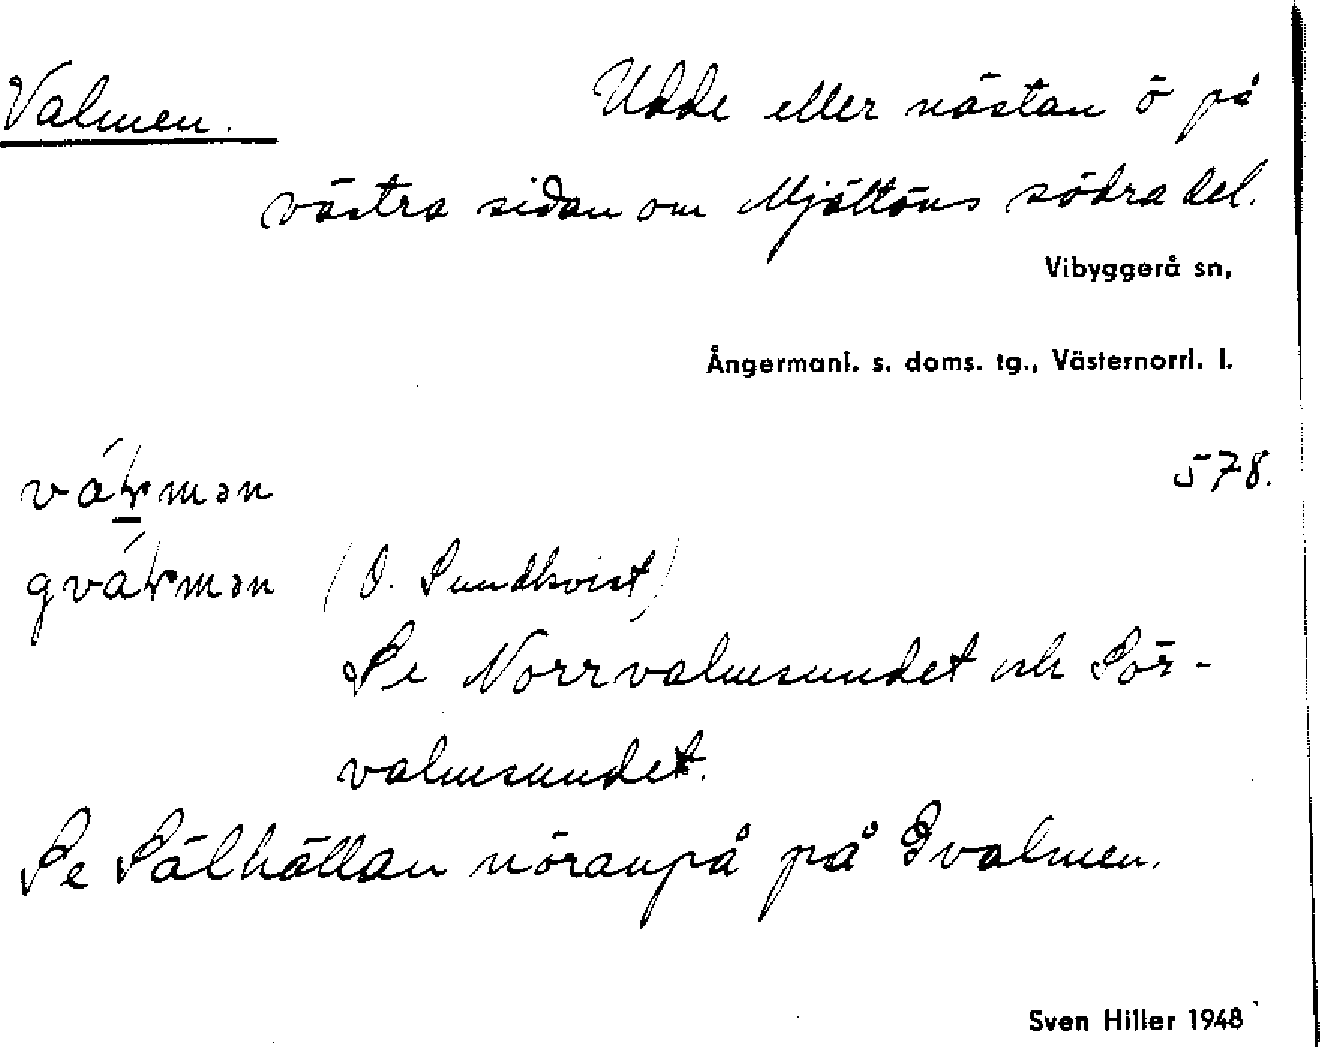 Valmen. Udde eller nästan ö på
västra sidan om Mjältöns södra del.
Vibyggerå sn,
Ångermanl. s. doms. tg., Västernorrl. l.
578.
(O. Sundkvist)
Se Norrvalmsundet och Sör-
valmsundet.
Se Sälhällan nöranpå på Gvalmen.
Sven Hiller 1948